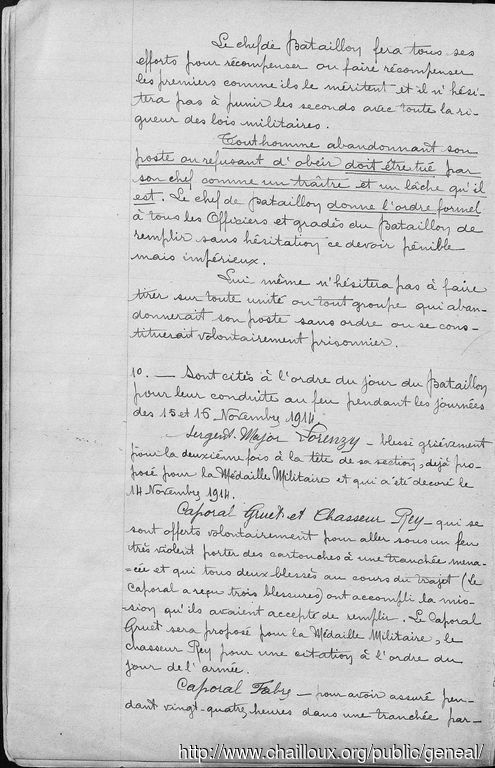 Le chef de Bataillon fera tous ses
efforts pour récompenser ou faire récompenser
les premiers comme ils le méritent et il n'hési-
tera pas à punir les seconds avec toute la ri-
gueur des lois militaires.
Tout homme abandonnant son
poste ou refusant d'obeir doit être tué par
son chef comme un traître et un lâche qu'il
est. Le chef de Bataillon donne l'ordre formel
à tous les Officiers et gradés du Bataillon de
remplir sans hésitation ce devoir pénible
mais impérieux.
Lui même n'hésitera pas à faire
tirer sur toute unité ou tout groupe qui aban-
donnerait son poste sans ordre ou se cons-
tituerait volontairement prisonnier.
10. — Sont cités à l'ordre du jour du Bataillon
pour leur conduite au feu pendant les journées
des 15 et 16 Novembre 1914.
Sergent-Major Lorenzy — blessé grièvement
pour la deuxième fois à la tête de sa section, déjà pro-
posé pour la Médaille Militaire et qui a été decoré le
14 Novembre 1914.
Caporal Gruet et Chasseur Rey — qui se
sont offerts volontairement pour aller sous un feu
très violent porter des cartouches à une tranchée mena-
-cée et qui tous deux blessés au cours du trajet (Le
Caporal a reçu trois blessures) ont accompli la mis-
-sion qu'ils avaient accepté de remplir. Le Caporal
Gruet sera proposé pour la Médaille Militaire, le
chasseur Rey pour une citation à l'ordre du
jour de l'armée.
Caporal Fabre — pour avoir assuré pen-
dant vingt-quatre, heures dans une tranchée par-
http://www.chailloux.org/public/geneal/